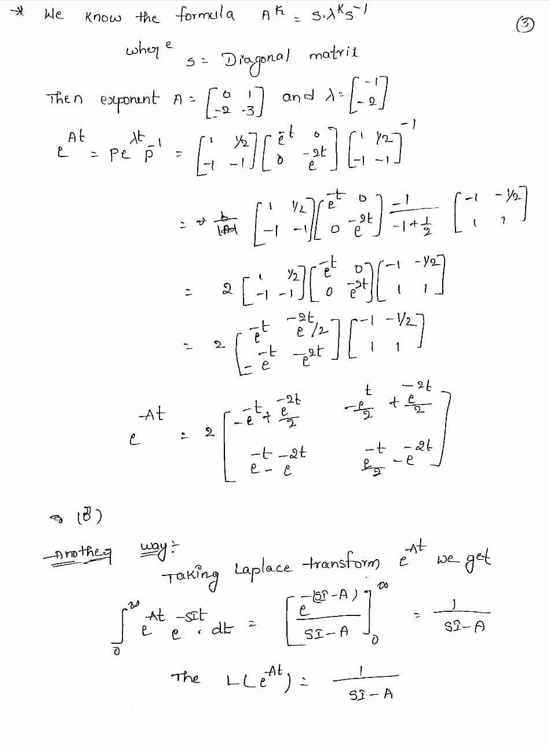 * We know the formula A^k = S.λ^k S^-1 ③
where
S = Diagonal matrix
Then exponent A = [0 1; -2 -3] and λ = [-1; -2]
e^At = Pe^λt P^-1 = [1 1/2; -1 -1] [e^-t 0; 0 e^-2t] [1 1/2; -1 -1]^-1
= [1 1/2; -1 -1] [e^-t 0; 0 e^-2t] -1/(-1+1/2) [-1 -1/2; 1 1]
= 2 [1 1/2; -1 -1] [e^-t 0; 0 e^-2t] [-1 -1/2; 1 1]
= 2 [e^-t e^-2t/2; -e^-t -e^2t] [-1 -1/2; 1 1]
e^-At = 2 [-e^-t + e^-2t/2 -e^t/2 + e^-2t/2; e^-t - e^-2t e^-t/2 - e^-2t]
⇒ (B)
Another way:-
Taking Laplace transform e^-At we get
∫_0^∞ e^-At e^-SIt . dt = [e^-(SI-A) / SI-A]_0^∞ = 1/SI-A
The L(e^-At) = 1/SI-A